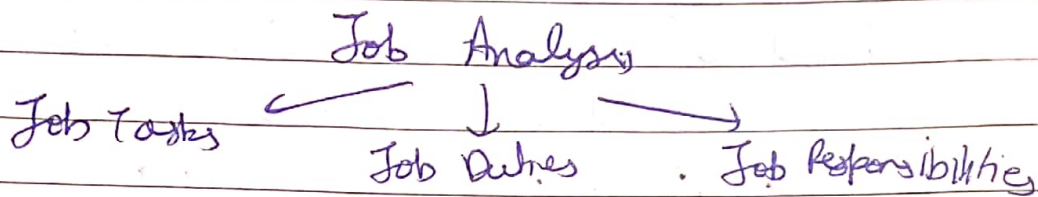 Job Analysis
Job Tasks
Job Duties
Job Responsibilities